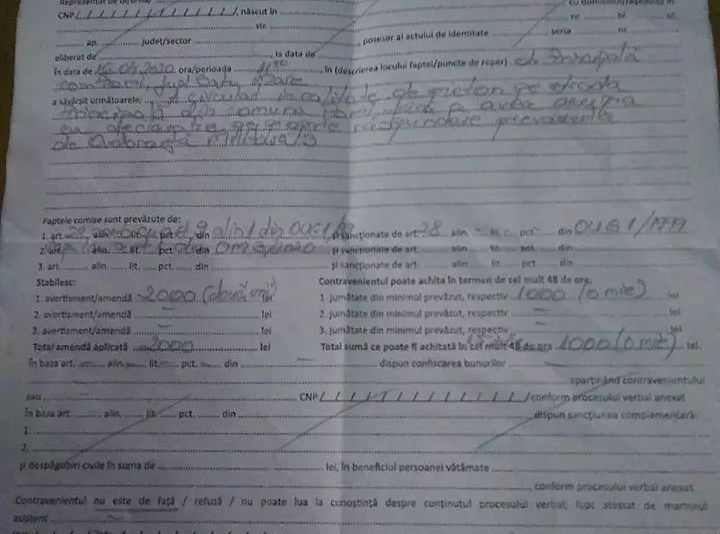 CNP / / / / / / / / / / / / /, născut în
str. nr. bl. sc.
ap. judet/sector , posesor al actului de identitate seria nr.
eliberat de la data de
în data de ora/perioada 11:30 în (descrierea locului faptei/puncte de reper) str Principală
a săvârșit următoarele: A circulat în calitate de pieton pe strada
principală din comuna fără a avea asupra
sa declarația pe propria răspundere prevăzută
de Ordonanța Militară 3
Faptele comise sunt prevăzute de:
1. art. alin. lit. pct. din și sancționate de art. 28 alin. - lit. - pct. - din OUG 1/1999
2. art. alin. lit. pct. din și sancționate de art. alin. lit. pct. din
3. art. alin. lit. pct. din și sancționate de art. alin. lit. pct. din
Stabilesc: Contravenientul poate achita în termen de cel mult 48 de ore:
1. avertisment/amendă 2000 (două mii) 1. jumătate din minimul prevăzut, respectiv 1000 (o mie) lei
2. avertisment/amendă - lei 2. jumătate din minimul prevăzut, respectiv - lei
3. avertisment/amendă - lei 3. jumătate din minimul prevăzut, respectiv - lei
Total amendă aplicată 2000 lei Total sumă ce poate fi achitată în cel mult 48 de ore 1000 (o mie) lei.
în baza art. alin. lit. pct. din dispun confiscarea bunurilor
aparținând contravenientului
sau CNP / / / / / / / / / / / / / /conform procesului verbal anexat
în baza art. alin. lit. pct. din dispun sancțiunea complementară:
1.
2.
și despăgubiri civile în suma de lei, în beneficiul persoanei vătămate
conform procesului verbal anexat.
Contravenientul nu este de față / refuză / nu poate lua la cunoștință despre conținutul procesului verbal, fapt atestat de martorul
asistent